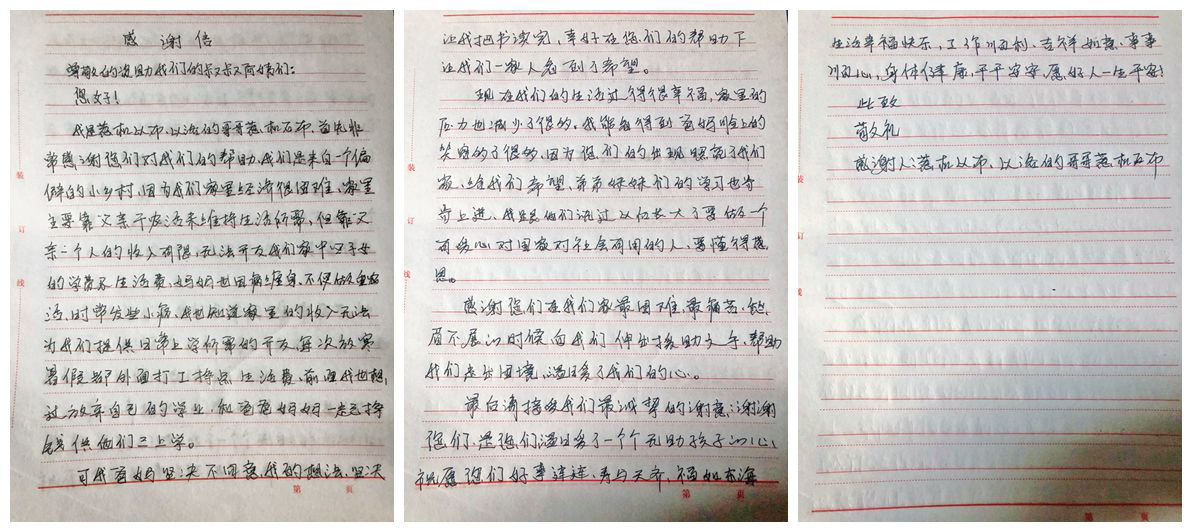 感谢信
尊敬的资助我们的叔叔阿姨们:
您好!
我是慈和以布、以洛的哥哥慈和石布,首先非
常感谢您们对我们的帮助,我们是来自一个偏
僻的小乡村,因为我们家里经济很困难、家里
主要靠父亲干农活来维持生活所需,但靠父
亲一个人的收入有限,无法开支我们家中四子女
的学费及生活费,妈妈也因病缠身、不便做重农
活,时常发些小病,我也知道家里的收入无法
为我们提供日常上学所需的开支,每次放寒
暑假都外面打工挣点生活费、前面我也想
过放弃自己的学业,和爸爸妈妈一起去挣
钱供他们三上学。
可我爸妈坚决不同意我的想法,坚决
让我把书读完,幸好在您们的帮助下
让我们一家人看到了希望。
现在我们的生活过得很幸福,家里的
压力也减少了很多。我能看得到爸妈脸上的
笑容多了很多,因为您们的出现照亮了我们
家、给我们希望、弟弟妹妹们的学习也奋
奋上进、我跟他们说过以后长大了要做一个
有爱心对国家对社会有用的人、要懂得感
恩。
感谢您们在我们家最困难、最痛苦、愁
眉不展的时候向我们伸出援助之手、帮助
我们走出困境、温暖了我们的心。
最后请接受我们最诚挚的谢意:谢谢
您们、是您们温暖了一个个无助孩子的心、
祝愿您们好事连连、寿与天齐、福如东海
生活幸福快乐,工作顺利、吉祥如意、事事
顺心,身体健康,平平安安,愿好人一生平安!
此致
敬礼
感谢人:慈和以布、以洛的哥哥慈和石布
装
订
线
第 页
装
订
线
第 页
装
订
线
第 页